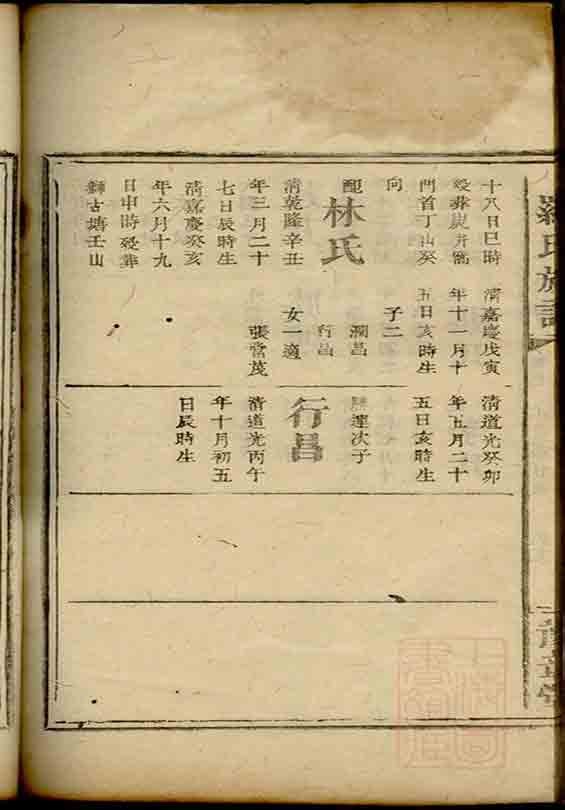 十八日巳時
歿葬
門首丁山癸
向
配林氏
清乾隆辛丑
年三月二十
七日辰時生
清嘉慶癸亥
年六月十九
日申時歿葬
獅古塘壬山
清嘉慶戊寅
年十一月十
五日亥時生
子二
潤昌
行昌
女一適
張當茂
清道光癸卯
年五月二十
五日亥時生
連次子
行昌
清道光丙午
年十月初五
日辰時生
羅氏族譜
豫章堂
上海圖書館藏